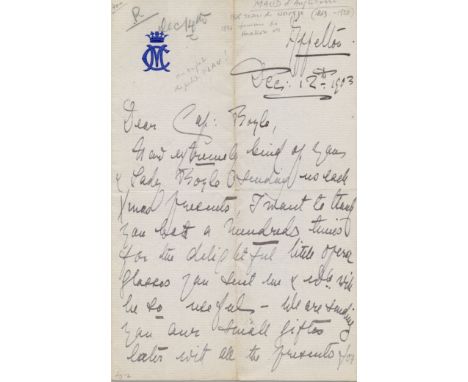 MAUD d'Angleterre
R
Dec 14th
Appelton
Dec: 12th 1903
Dear Cap: Boyle,
How extremely kind of you
& Lady Boyle sending us each
Xmas presents, I want to thank
you both a hundred times
for the delightful little opera
glasses you sent me & wh. will
be so useful - We are sending
you our small gifts
later with all the presents for